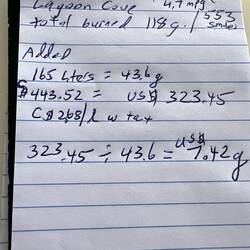 Lagoon Cove 4,7 mpg
total burned 118 g / 553 smiles
Added
165 liters = 43.6 g
C$443.52 = US$ 323.45
C$ 2.68/l w tax
323.45 ÷ 43.6 = US$ 7.42 g